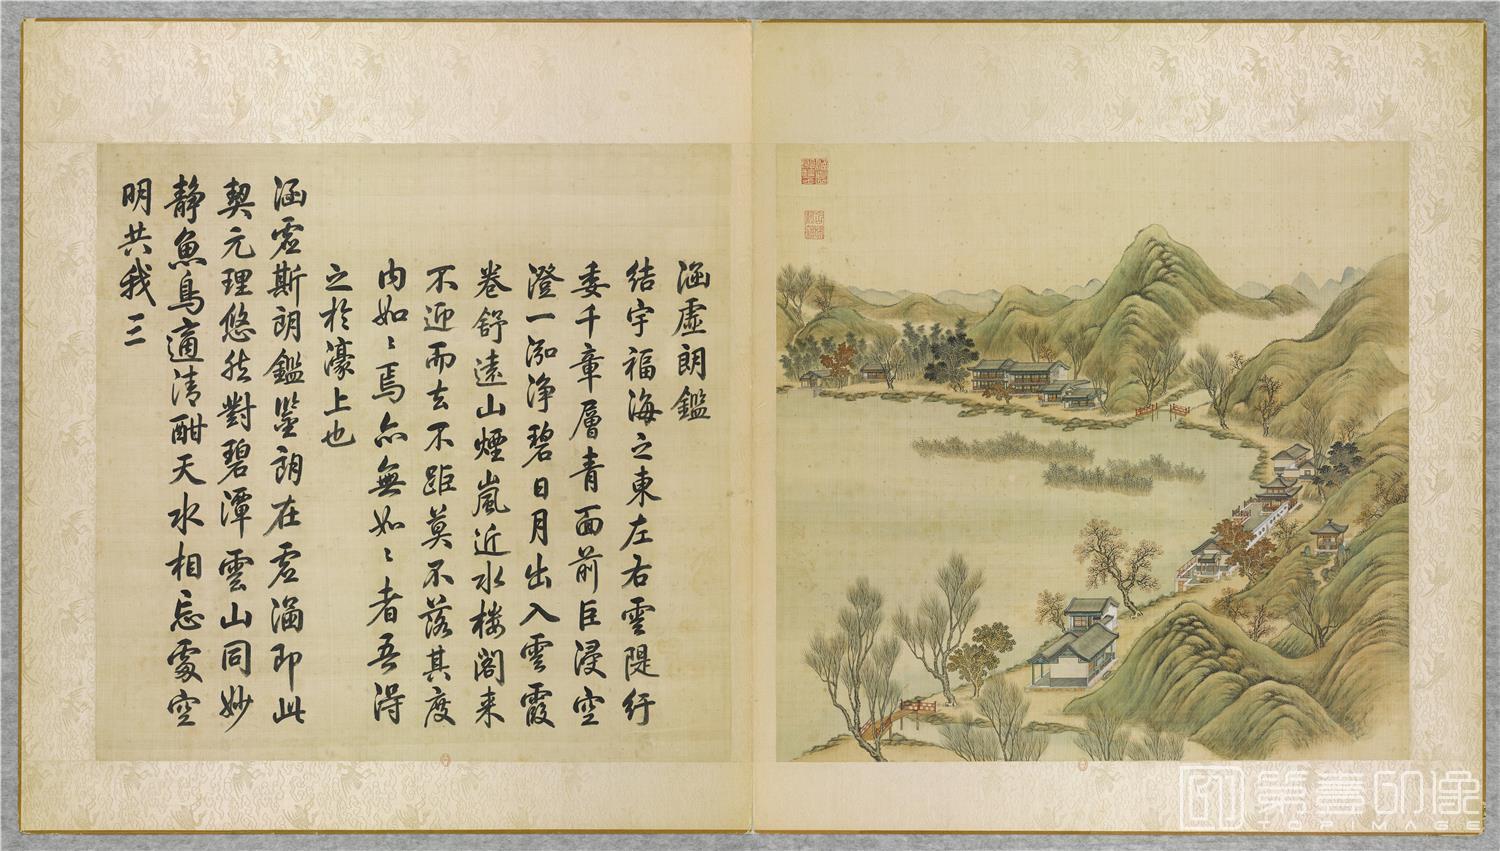 涵虛朗鑑
結宇福海之東左右雲隄紆
委千章層青面前巨浸空
澄一泓淨碧日月出入雲霞
卷舒遠山煙嵐近水楼阁来
不迎而去不距莫不落其度
内如〻焉亦無如〻者吾淂
之於濠上也
涵虛斯朗鑑鑒朗在虛涵即此
契元理悠然對碧潭雲山同妙
静魚鳥適清酣天水相忘處空
明共我三
第壹印像
TOPIMAGE